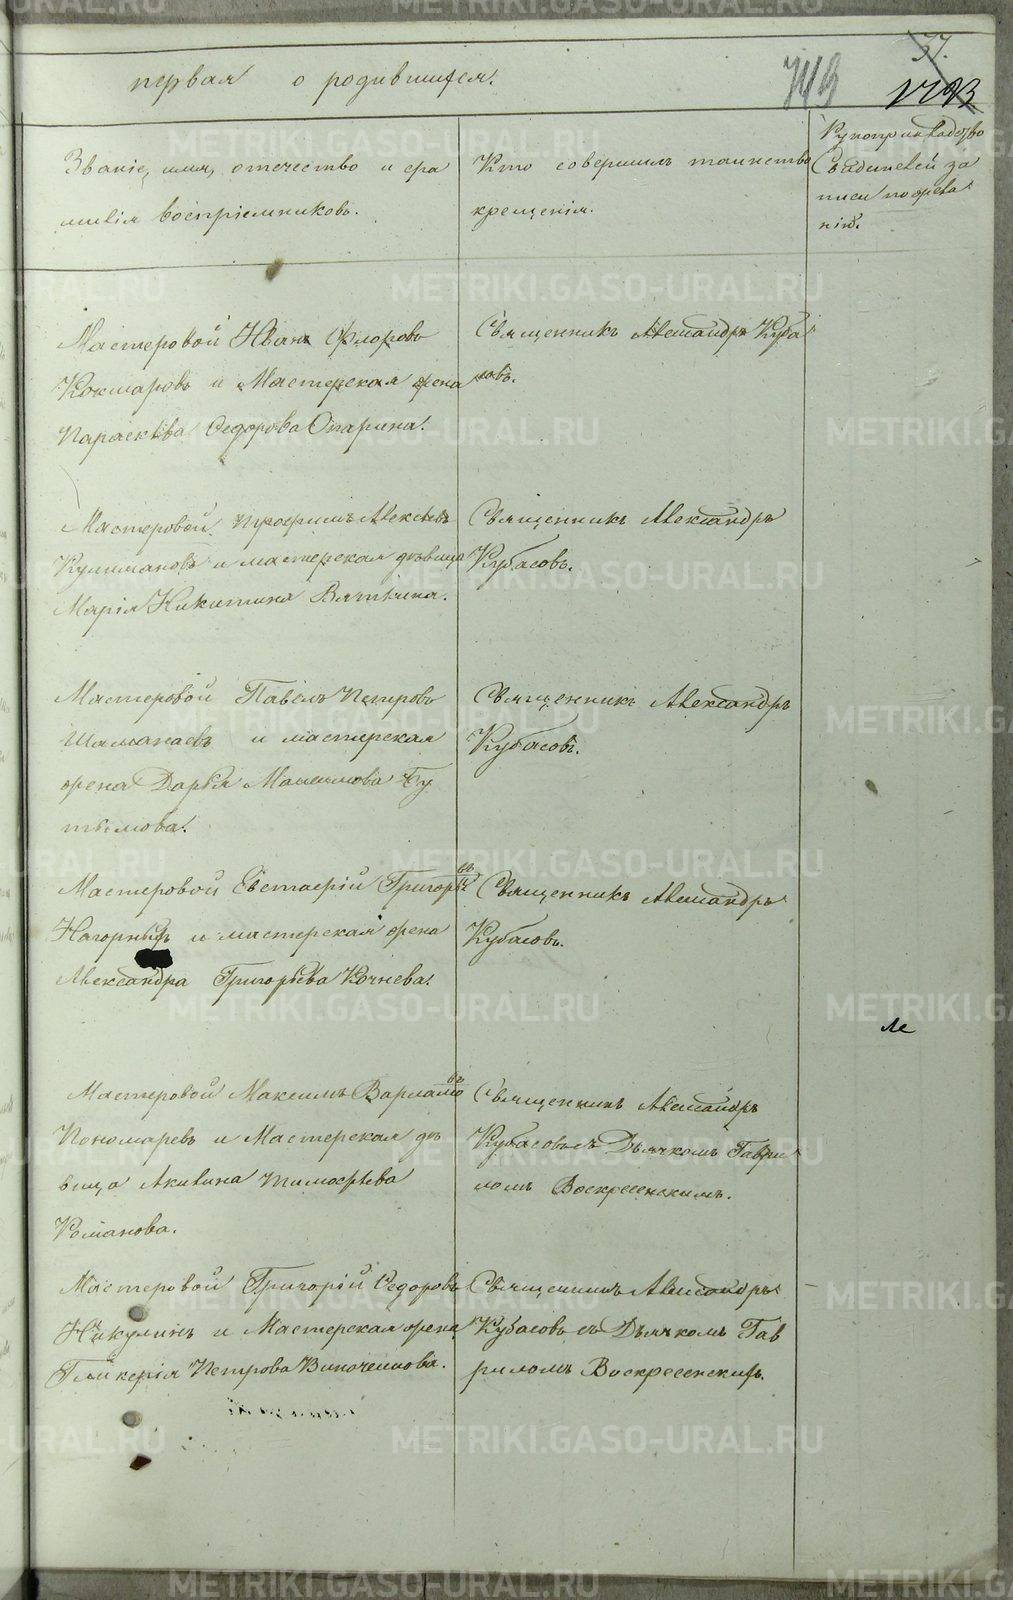 первая о родившихся.
37.
Званіе, имя, отечество и фа
милія воспріемниковъ.
Кто совершилъ таинство
крещенія.
Рукоприкладство
Свидѣтелей за
писи по жела
нію.
Мастеровой Иванъ Флоровъ
Кокшаровъ и Мастерская жена
Параскѣва Ѳедорова Опарина.
Священникъ Александръ Куба
совъ.
Мастеровой Трофимъ Алексѣевъ
и мастерская дѣвица
Марія Никитина Вяткина.
Священникъ Александръ
Кубасовъ.
Мастеровой Павелъ Петровъ
Шаманаевъ и мастерская
жена Дарья Бу
Священникъ Александръ
Кубасовъ.
Мастеровой Евстафій Григорьевъ
Нагорныхъ и мастерская жена
Александра Григорьева Кочнева.
Священникъ Александръ
Кубасовъ.
Мастеровой Максимъ Варламовъ
Пономаревъ и Мастерская дѣ
вица Акилина Тимофѣева
Романова.
Священникъ Александръ
Кубасовъ съ Дьячкомъ Гаври
ломъ Воскресенскимъ.
Мастеровой Григорій Ѳедоровъ
Никулинъ и Мастерская жена
Гликерія Петрова
Священникъ Александръ
Кубасовъ съ Дьячкомъ Гав
риломъ Воскресенскимъ.
METRIKI.GASO-URAL.RU